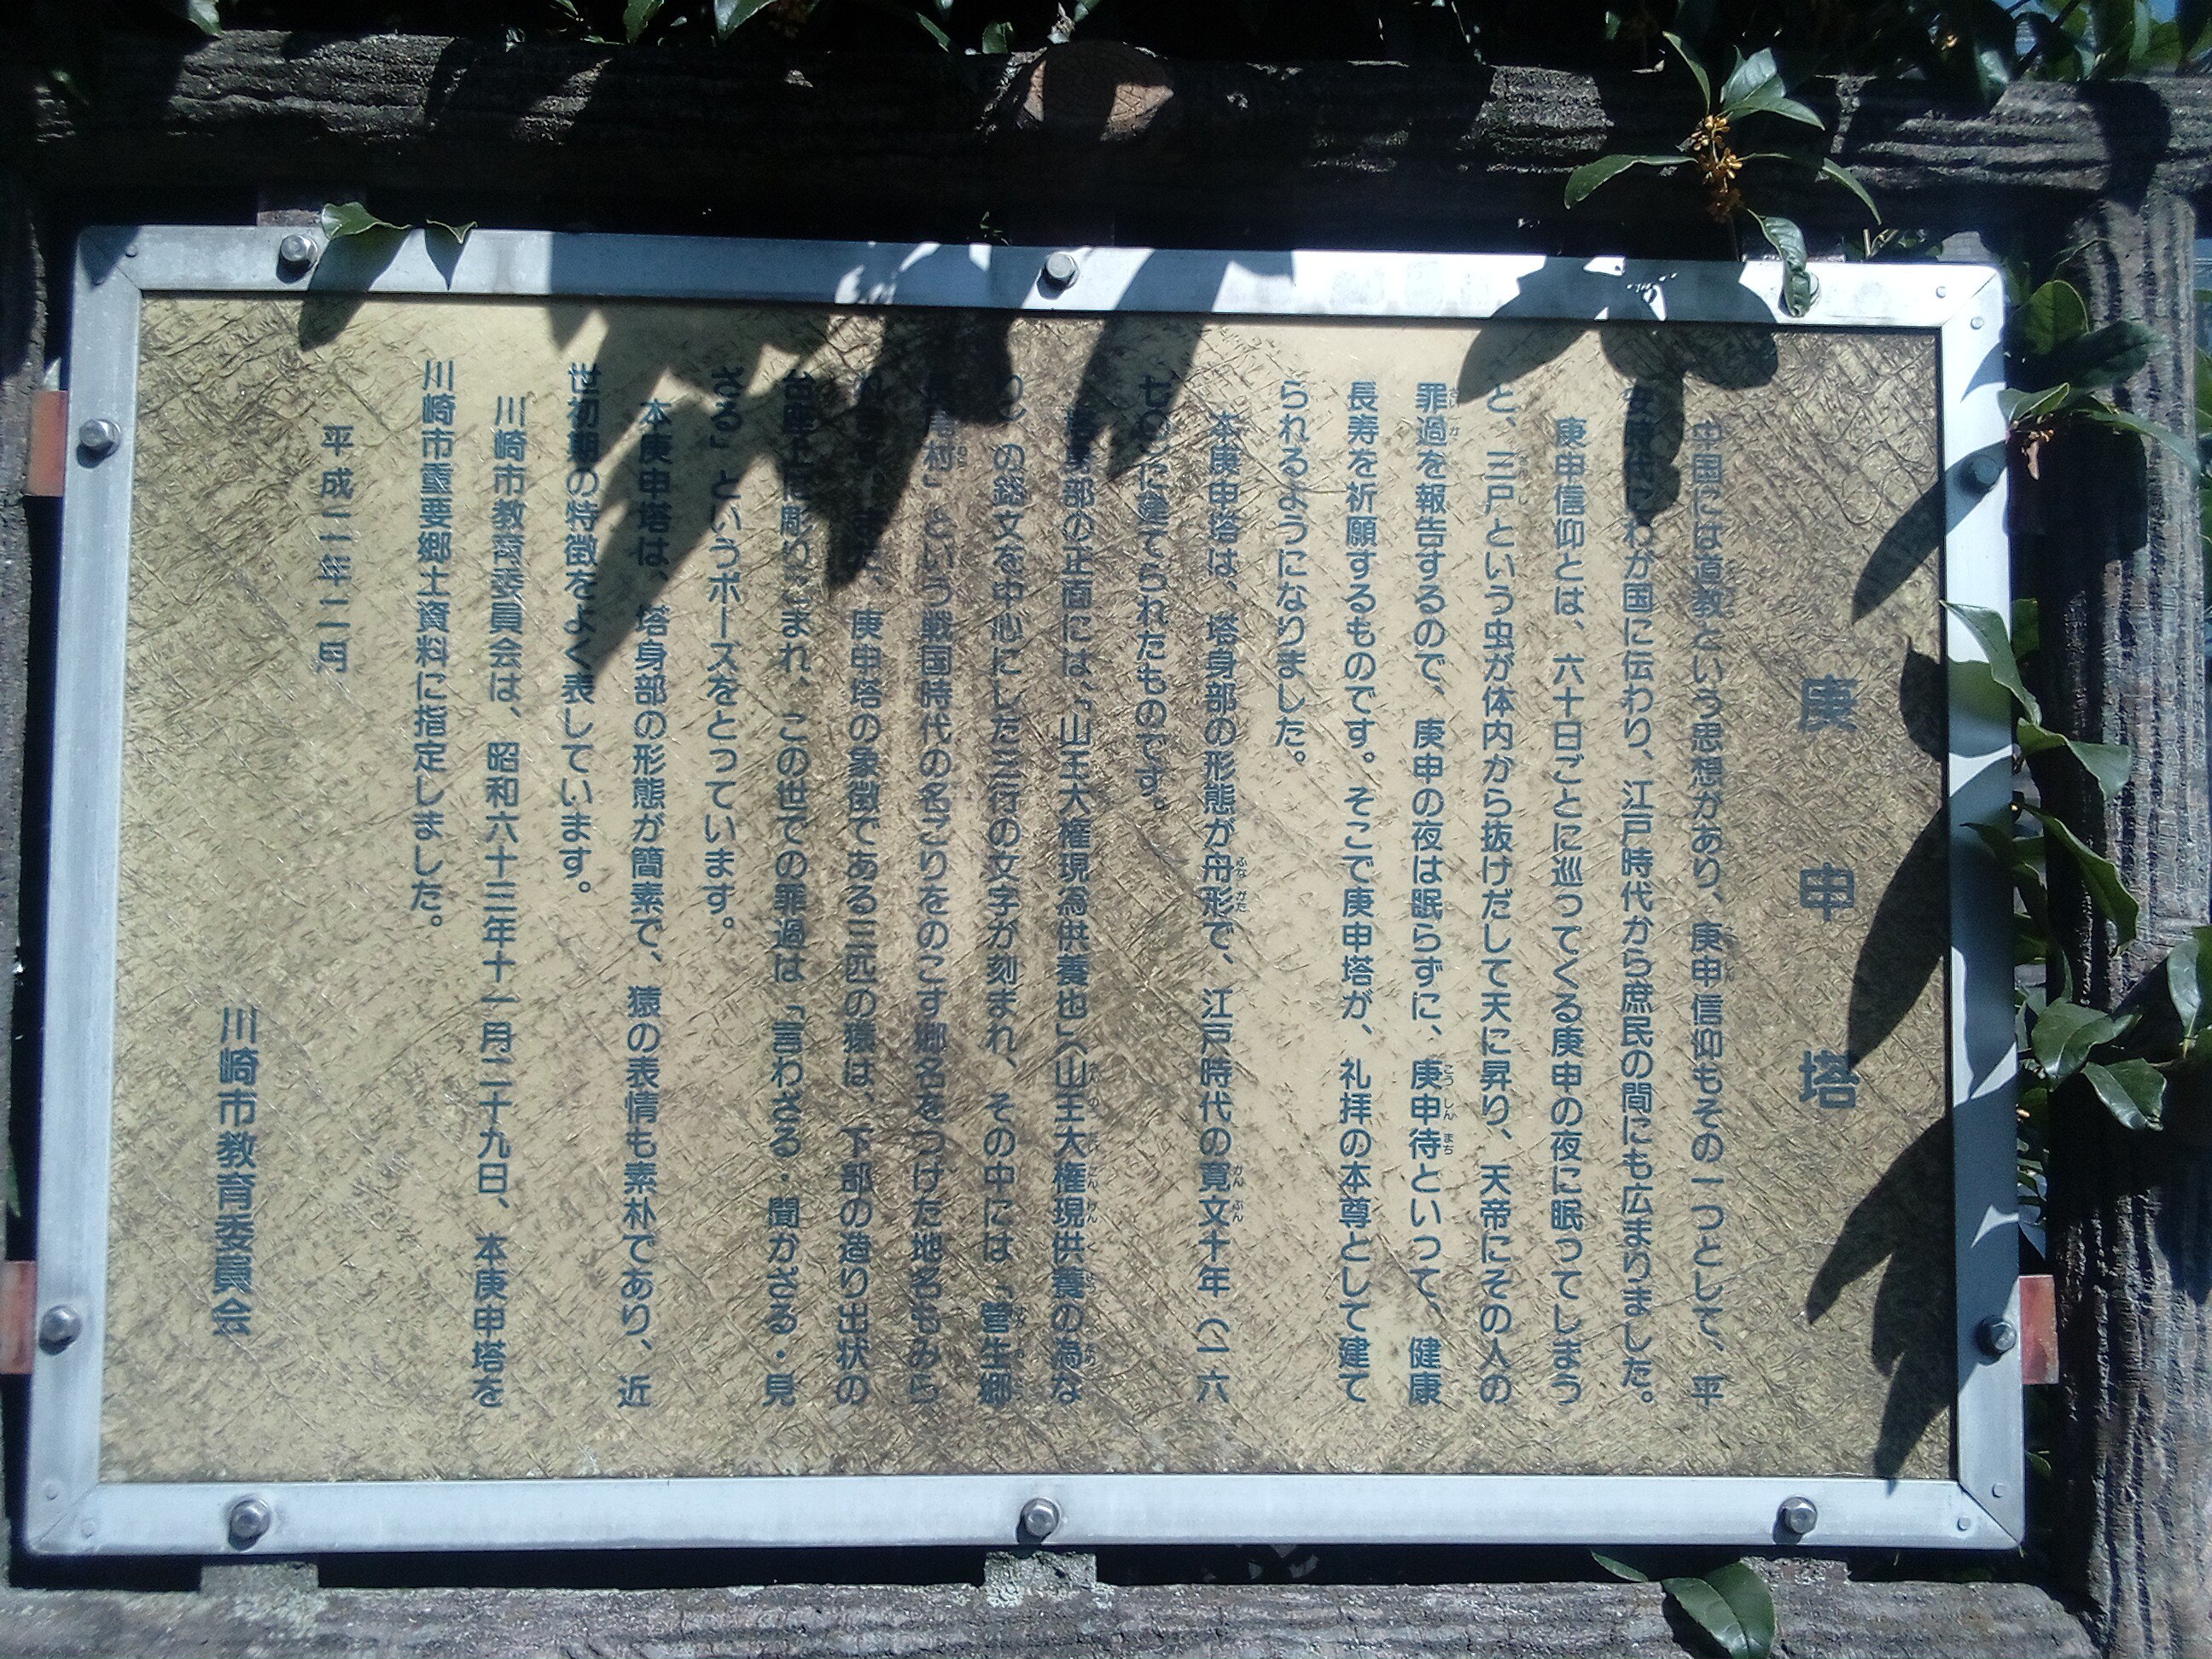 庚申塔
中国には道教という思想があり、庚申信仰もその一つとして、平
安時代にわが国に伝わり、江戸時代から庶民の間にも広まりました。
庚申信仰とは、六十日ごとに巡ってくる庚申の夜に眠ってしまう
と、三尸という虫が体内から抜けだして天に昇り、天帝にその人の
罪過を報告するので、庚申の夜は眠らずに、庚申待といって、健康
長寿を祈願するものです。そこで庚申塔が、礼拝の本尊として建て
られるようになりました。
本庚申塔は、塔身部の形態が舟形で、江戸時代の寛文十年（一六
七〇）に建てられたものです。
塔身部の正面には、「山王大権現為供養也」（山王大権現供養の為な
り）の銘文を中心にした三行の文字が刻まれ、その中には「菅生郷
村」という戦国時代の名ごりをのこす郷名をつけた地名もみら
れます。また、庚申塔の象徴である三匹の猿は、下部の造り出状の
台座上に彫りこまれ、この世での罪過は「言わざる・聞かざる・見
ざる」というポーズをとっています。
本庚申塔は、塔身部の形態が簡素で、猿の表情も素朴であり、近
世初期の特徴をよく表しています。
川崎市教育委員会は、昭和六十三年十一月二十九日、本庚申塔を
川崎市重要郷土資料に指定しました。
平成二年二月
川崎市教育委員会